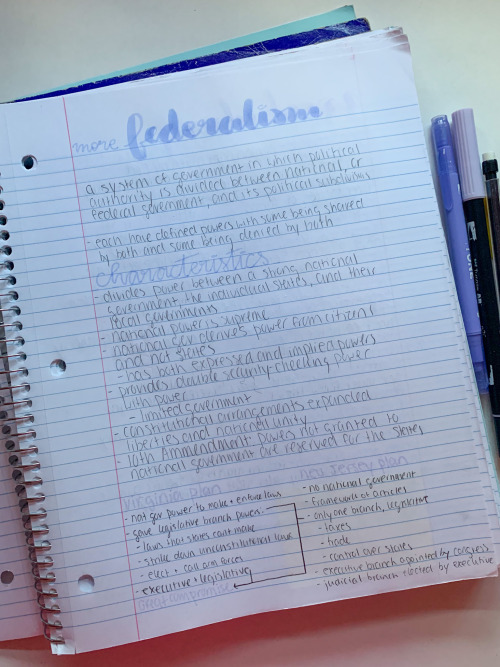 more federalism
a system of government in which political
authority is divided between national, or
federal government, and its political subdivisions
- each have defined powers with some being shared
by both and some being denied by both
characteristics
- divides power between a strong national
government, the individual states, and their
local governments
- national power is supreme
- national gov derives power from citizens
and not states
- has both expressed and implied powers
- provides double security checking power
with power
- limited government
- constitutional arrangements expanded
liberties and national unity
- 10th Ammendment: powers not granted to
national government are reserved for the states
virginia plan
- nat gov power to make + enforce laws
- gave legislative branch powers:
- laws that states cant make
- strike down unconstitutional laws
- elect + call arm forces
- executive + legislative
great compromise
new jersey plan
- no national government
- framework of articles
- only one branch, legislative
- taxes
- trade
- control over states
- executive branch appointed by congress
- judicial branch elected by executive